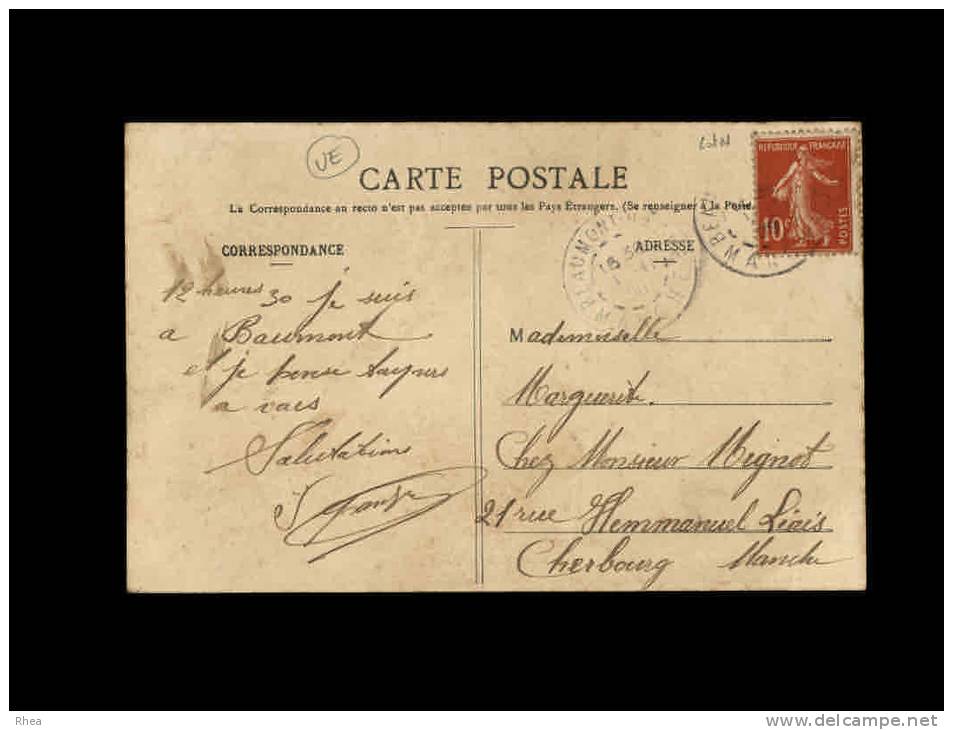 UE
CARTE POSTALE
La Correspondance au recto n'est pas acceptée par tous les Pays Étrangers. (Se renseigner à la Poste.
CORRESPONDANCE
ADRESSE
REPUBLIQUE FRANÇAISE
10c
POSTES
BEAUMONT
12 heures 30 je suis
a Baumont
et je pense toujours
a vous
Salutations
Mademoiselle
Marguerite.
Chez Monsieur Mignot
21 rue Hemmanuel Liais
Cherbourg Manche
Rhea
www.delcampe.net